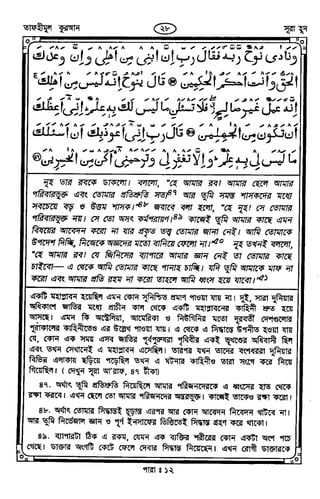 তাফহীমুল কুরআন
২৮
সূরা হূদ
وَنَادٰى نُوْحٌ رَّبَّهٗ فَقَالَ رَبِّ اِنَّ ابْنِيْ مِنْ اَهْلِيْ وَاِنَّ وَعْدَكَ
الْحَقُّ وَاَنْتَ اَحْكَمُ الْحٰكِمِيْنَ ۝ قَالَ يٰنُوْحُ اِنَّهٗ لَيْسَ مِنْ اَهْلِكَ ۚ
اِنَّهٗ عَمَلٌ غَيْرُ صَالِحٍ ۖ فَلَا تَسْـَٔلْنِ مَا لَيْسَ لَكَ بِهٖ عِلْمٌ ؕ اِنِّيْٓ اَعِظُكَ
اَنْ تَكُوْنَ مِنَ الْجٰهِلِيْنَ ۝ قَالَ رَبِّ اِنِّيْٓ اَعُوْذُ بِكَ اَنْ اَسْـَٔلَكَ
مَا لَيْسَ لِيْ بِهٖ عِلْمٌ ؕ وَاِلَّا تَغْفِرْ لِيْ وَتَرْحَمْنِيْٓ اَكُنْ مِّنَ الْخٰسِرِيْنَ ۝
নূহ তার রবকে ডাকলো। বললো, "হে আমার রব! আমার ছেলে আমার
পরিবারভুক্ত এবং তোমার প্রতিশ্রুতি সত্য৪৭ আর তুমি সমস্ত শাসকদের মধ্যে
সবচেয়ে বড় ও উত্তম শাসক।"৪৮ জবাবে বলা হলো, "হে নূহ! সে তোমার
পরিবারভুক্ত নয়। সে তো অসৎ কর্মপরায়ণ।৪৯ কাজেই তুমি আমার কাছে এমন
বিষয়ের আবেদন করো না যার প্রকৃত তত্ত্ব তোমার জানা নেই। আমি তোমাকে
উপদেশ দিচ্ছি, নিজেকে অজ্ঞদের মতো বানিয়ে ফেলো না।"৫০ নূহ তখনই বললো,
"হে আমার রব! যে জিনিসের ব্যাপারে আমার জ্ঞান নেই তা তোমার কাছে
চাইবো— এ থেকে আমি তোমার কাছে পানাহ চাচ্ছি। যদি তুমি আমাকে মাফ না
করো এবং আমার প্রতি রহম না করো তাহলে আমি ধ্বংস হয়ে যাবো।"৫১
একটি মহাপ্লাবন হয়েছিল এমন কোন সুনিশ্চিত প্রমাণ পাওয়া যায় না। দুই, সারা দুনিয়ার
অধিকাংশ জাতির মধ্যে প্রাচীন কাল থেকে একটি মহাপ্লাবনের কাহিনী শ্রুত হয়ে
আসছে। এমন কি অস্ট্রেলিয়া, আমেরিকা ও নিউগিনির মতো দূরবর্তী দেশগুলোর
পুরাকালের কাহিনীতেও এর উল্লেখ পাওয়া যায়। এ থেকে এ সিদ্ধান্তে উপনীত হওয়া যায়
যে, কোন এক সময় এসব জাতির পূর্বপুরুষরা পৃথিবীর একই ভূখণ্ডের অধিবাসী ছিল
এবং তখন সেখানেই এ মহাপ্লাবন এসেছিল। তারপর যখন তাদের বংশধররা দুনিয়ার
বিভিন্ন এলাকায় ছড়িয়ে পড়েছিল তখন এ ঘটনার কাহিনীও তারা সংগে করে নিয়ে
গিয়েছিল। (দেখুন সূরা আ'রাফ, ৪৭ টীকা)
৪৭. অর্থাৎ তুমি প্রতিশ্রুতি দিয়েছিলে আমার পরিজনদেরকে এ ধ্বংসের হাত থেকে
রক্ষা করবে। এখন ছেলে তো আমার পরিজনদের অন্তরভুক্ত। কাজেই তাকেও রক্ষা করো।
৪৮. অর্থাৎ তোমার সিদ্ধান্তই চূড়ান্ত এরপর আর কোন আবেদন নিবেদন খাটবে না।
আর তুমি নির্ভেজাল জ্ঞান ও পূর্ণ ইনসাফের ভিত্তিতেই সিদ্ধান্ত গ্রহণ করে থাকো।
৪৯. ব্যাপারটা ঠিক এ রকম, যেমন এক ব্যক্তির শরীরের কোন একটা অংশ পচে
গেছে। ডাক্তার অংগটি কেটে ফেলে দেবার সিদ্ধান্ত নিয়েছেন। এখন রোগী ডাক্তারকে
পারা ঃ ১২